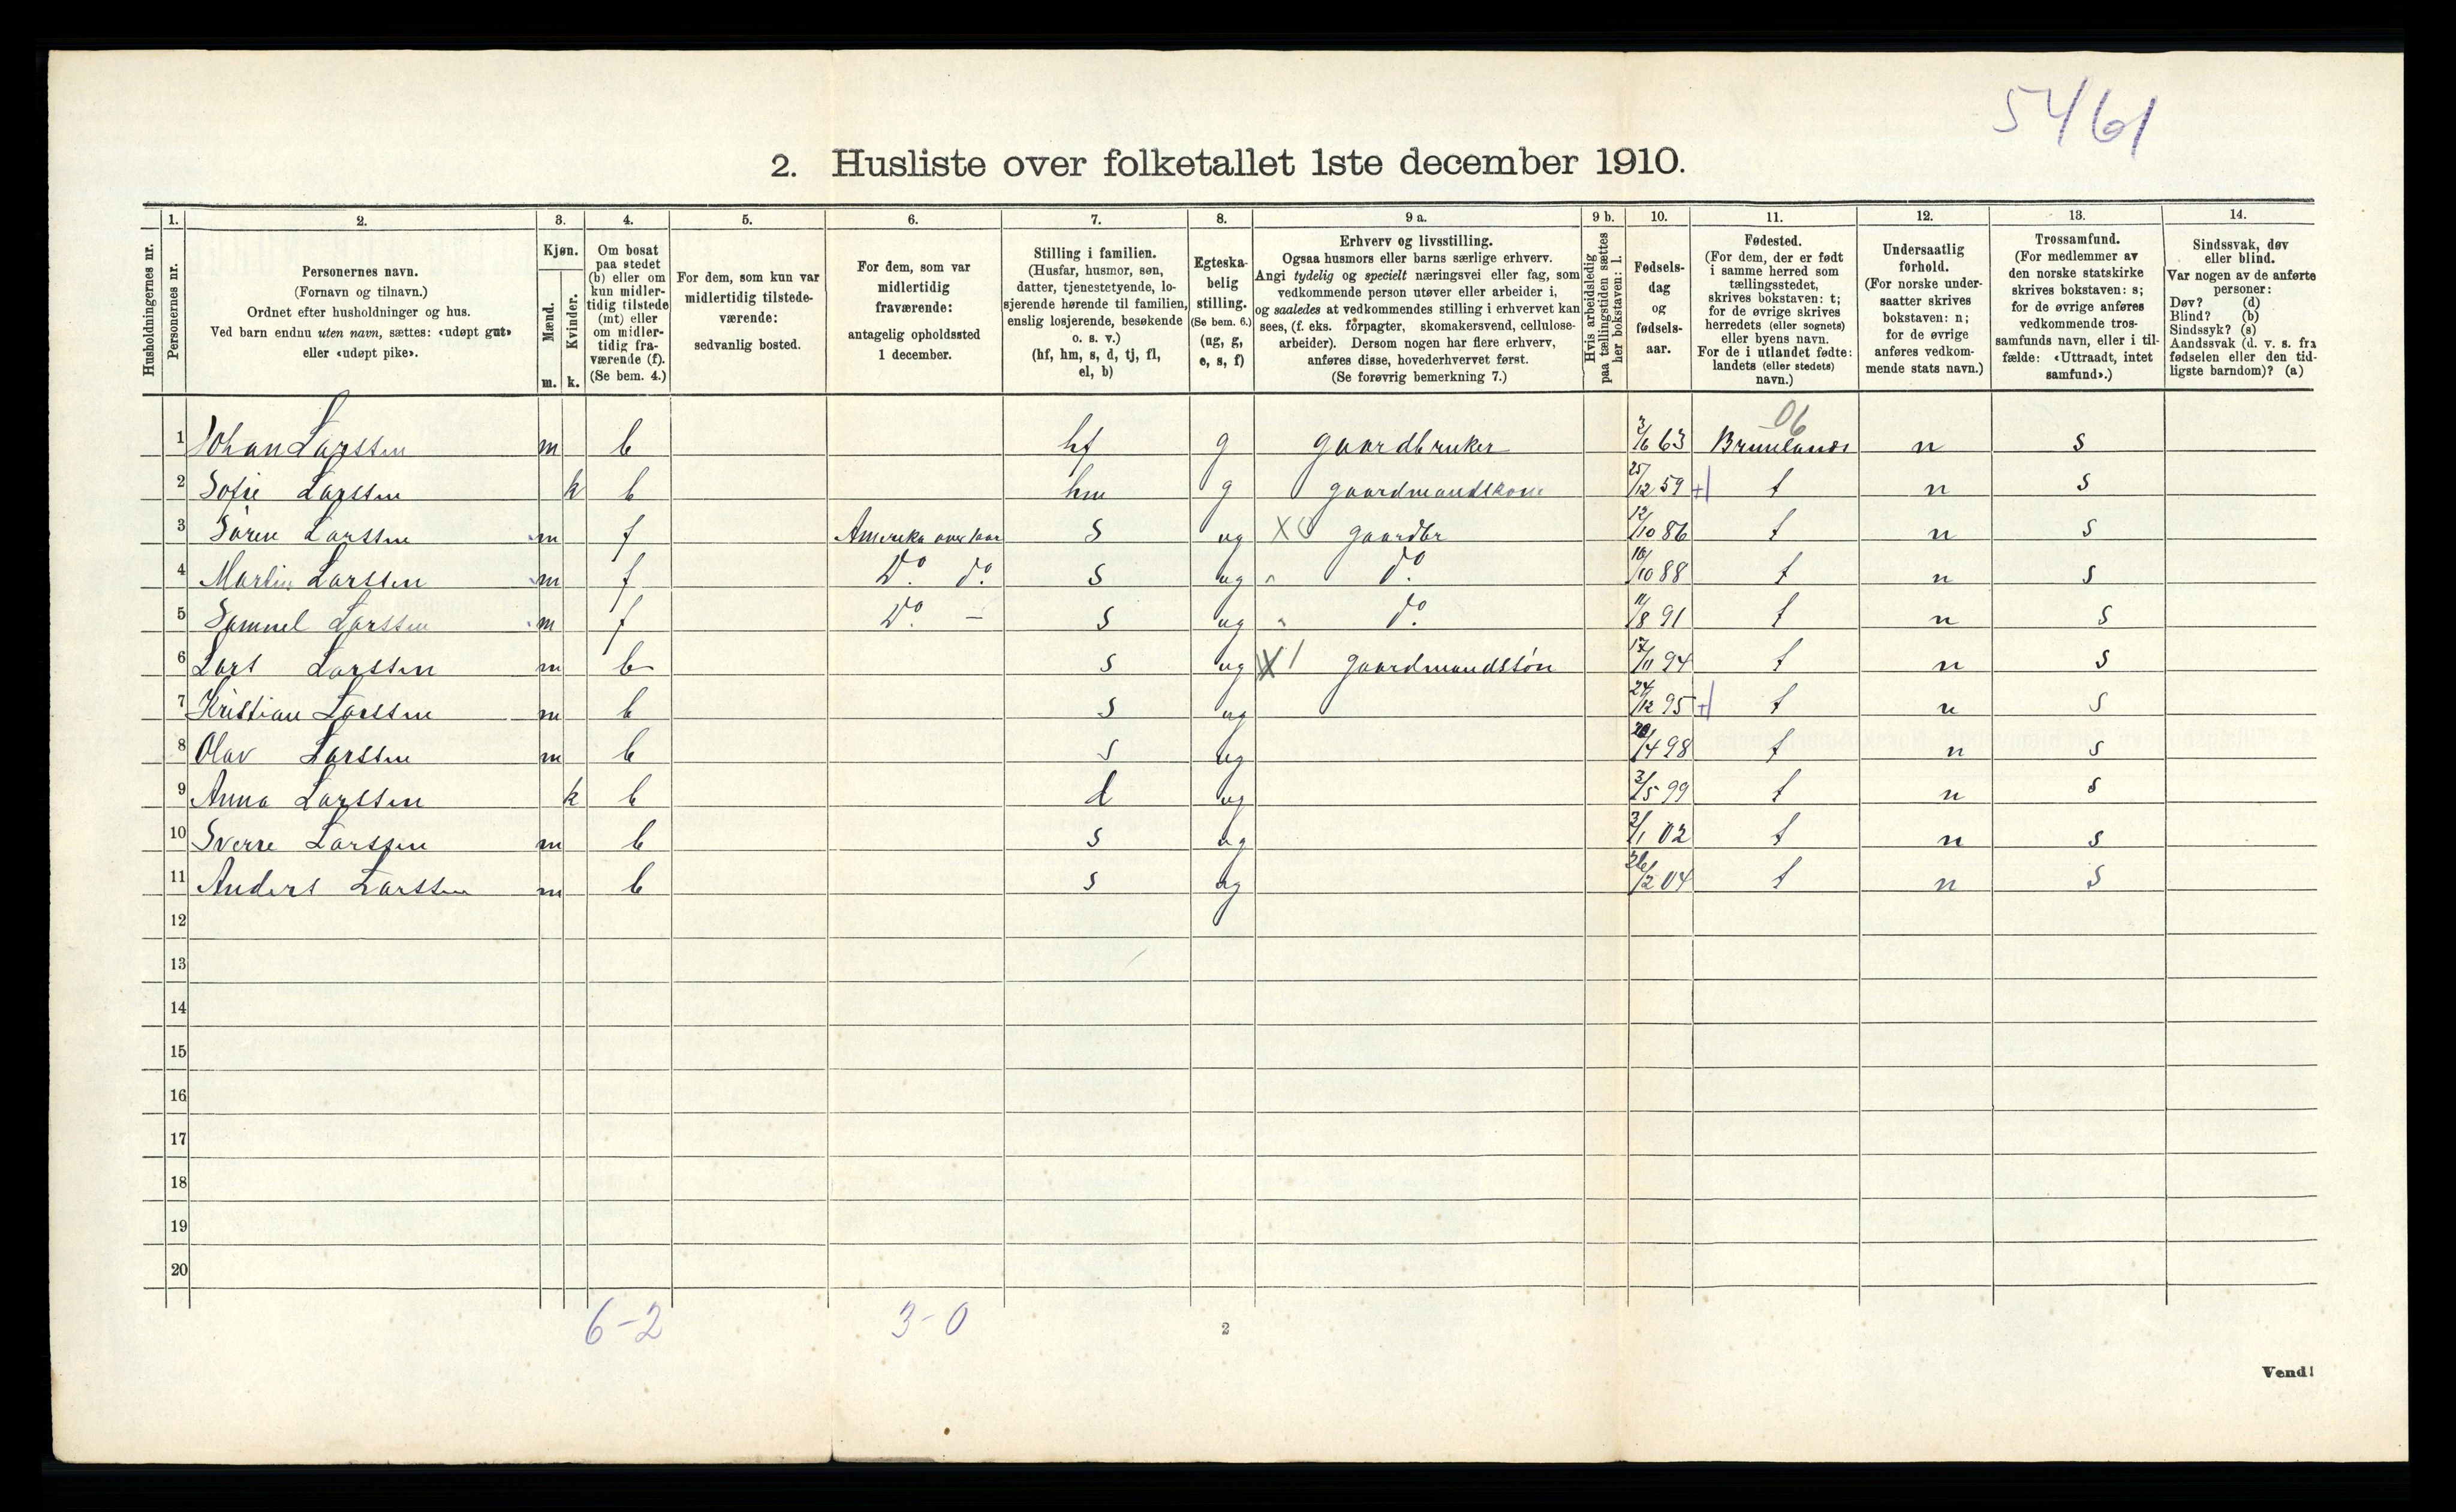 5461
2. Husliste over folketallet 1ste december 1910.
1. 2. 3. 4. 5. 6. 7. 8. 9 a. 9 b. 10. 11. 12. 13. 14.
Husholdningernes nr.
Personernes nr.
Personernes navn.
(Fornavn og tilnavn.)
Ordnet efter husholdninger og hus.
Ved barn endnu uten navn, sættes: «udøpt gut»
eller «udøpt pike».
Kjøn.
Mænd.
Kvinder.
m. k.
Om bosat
paa stedet
(b) eller om
kun midler-
tidig tilstede
(mt) eller
om midler-
tidig fra-
værende (f).
(Se bem. 4.)
For dem, som kun var
midlertidig tilstede-
værende:
sedvanlig bosted.
For dem, som var
midlertidig
fraværende:
antagelig opholdssted
1 december.
Stilling i familien.
(Husfar, husmor, søn,
datter, tjenestetyende, lo-
sjerende hørende til familien,
enslig losjerende, besøkende
o. s. v.)
(hf, hm, s, d, tj, fl,
el, b)
Egteska-
belig
stilling.
(Se bem. 6.)
(ug, g,
e, s, f)
Erhverv og livsstilling.
Ogsaa husmors eller barns særlige erhverv.
Angi tydelig og specielt næringsvei eller fag, som
vedkommende person utøver eller arbeider i,
og saaledes at vedkommendes stilling i erhvervet kan
sees, (f. eks. forpagter, skomakersvend, cellulose-
arbeider). Dersom nogen har flere erhverv,
anføres disse, hovederhvervet først.
(Se forøvrig bemerkning 7.)
Hvis arbeidsledig
paa tællingstiden sættes
her bokstaven: l.
Fødsels-
dag
og
fødsels-
aar.
Fødested.
(For dem, der er født
i samme herred som
tællingsstedet,
skrives bokstaven: t;
for de øvrige skrives
herredets (eller sognets)
eller byens navn.
For de i utlandet fødte:
landets (eller stedets)
navn.)
Undersaatlig
forhold.
(For norske under-
saatter skrives
bokstaven: n;
for de øvrige
anføres vedkom-
mende stats navn.)
Trossamfund.
(For medlemmer av
den norske statskirke
skrives bokstaven: s;
for de øvrige anføres
vedkommende tros-
samfunds navn, eller i til-
fælde: «Uttraadt, intet
samfund».)
Sindssvak, døv
eller blind.
Var nogen av de anførte
personer:
Døv? (d)
Blind? (b)
Sindssyk? (s)
Aandssvak (d. v. s. fra
fødselen eller den tid-
ligste barndom)? (a)
06
1 Johan Larssen m b hf g gaardbruker 3/6 63 n s
2 Sofie Larssen k b hm g gaardmandskone 25/12 59 t n s
3 Sören Larssen m f Amerika s ug X gaardbr 12/10 86 t n s
4 Martin Larssen m f Do. do. s ug " do. 10/10 88 t n s
5 Samuel Larssen m f Do. — s ug " do. 11/8 91 t n s
6 Lars Larssen m b s ug X 1 gaardmandssön 17/11 94 t n s
7 Kristian Larssen m b s ug 24/12 95 t n s
8 Olav Larssen m b s ug 20/4 98 t n s
9 Anna Larssen k b d ug 3/5 99 t n s
10 Sverre Larssen m b s ug 3/1 02 t n s
11 Anders Larssen m b s ug 26/2 04 t n s
12
13
14
15
16
17
18
19
20
6-2 3-0
2
Vend!